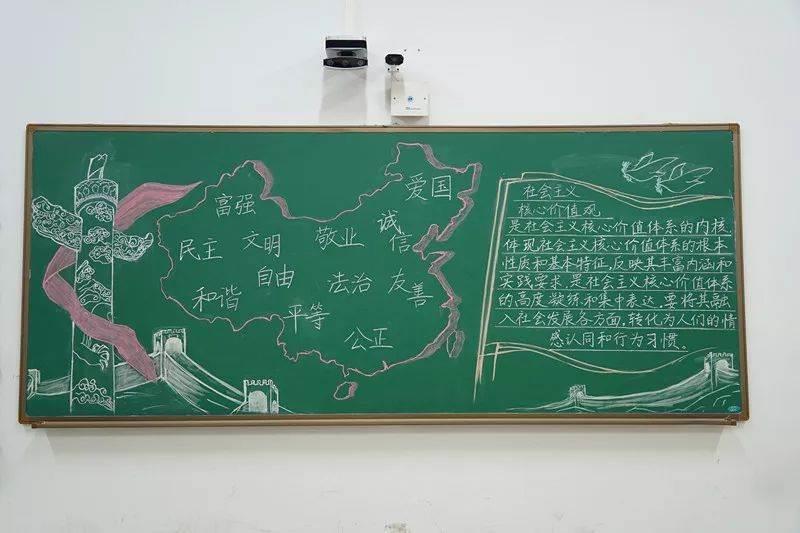 富强
爱国
民主
文明
敬业
诚信
自由
和谐
法治
友善
平等
公正
社会主义
核心价值观
是社会主义核心价值体系的内核,
体现社会主义核心价值体系的根本
性质和基本特征,反映其丰富内涵和
实践要求,是社会主义核心价值体系
的高度凝练和集中表达,要将其融
入社会发展各方面,转化为人们的情
感认同和行为习惯。